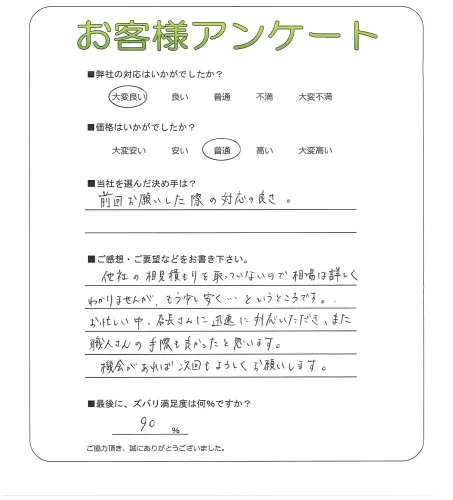 お客様アンケート
■弊社の対応はいかがでしたか?
大変良い 良い 普通 不満 大変不満
■価格はいかがでしたか?
大変安い 安い 普通 高い 大変高い
■当社を選んだ決め手は?
前回お願いした際の対応の良さ。
■ご感想・ご要望などをお書き下さい。
他社の相見積もりを取っていないので相場は詳しく
わかりませんが、もう少し安く…というところです。
お忙しい中、店長さんに迅速に対応いただき、また
職人さんの手際も良かったと思います。
機会があれば次回もよろしくお願いします。
■最後に、ズバリ満足度は何%ですか?
90 %
ご協力頂き、誠にありがとうございました。